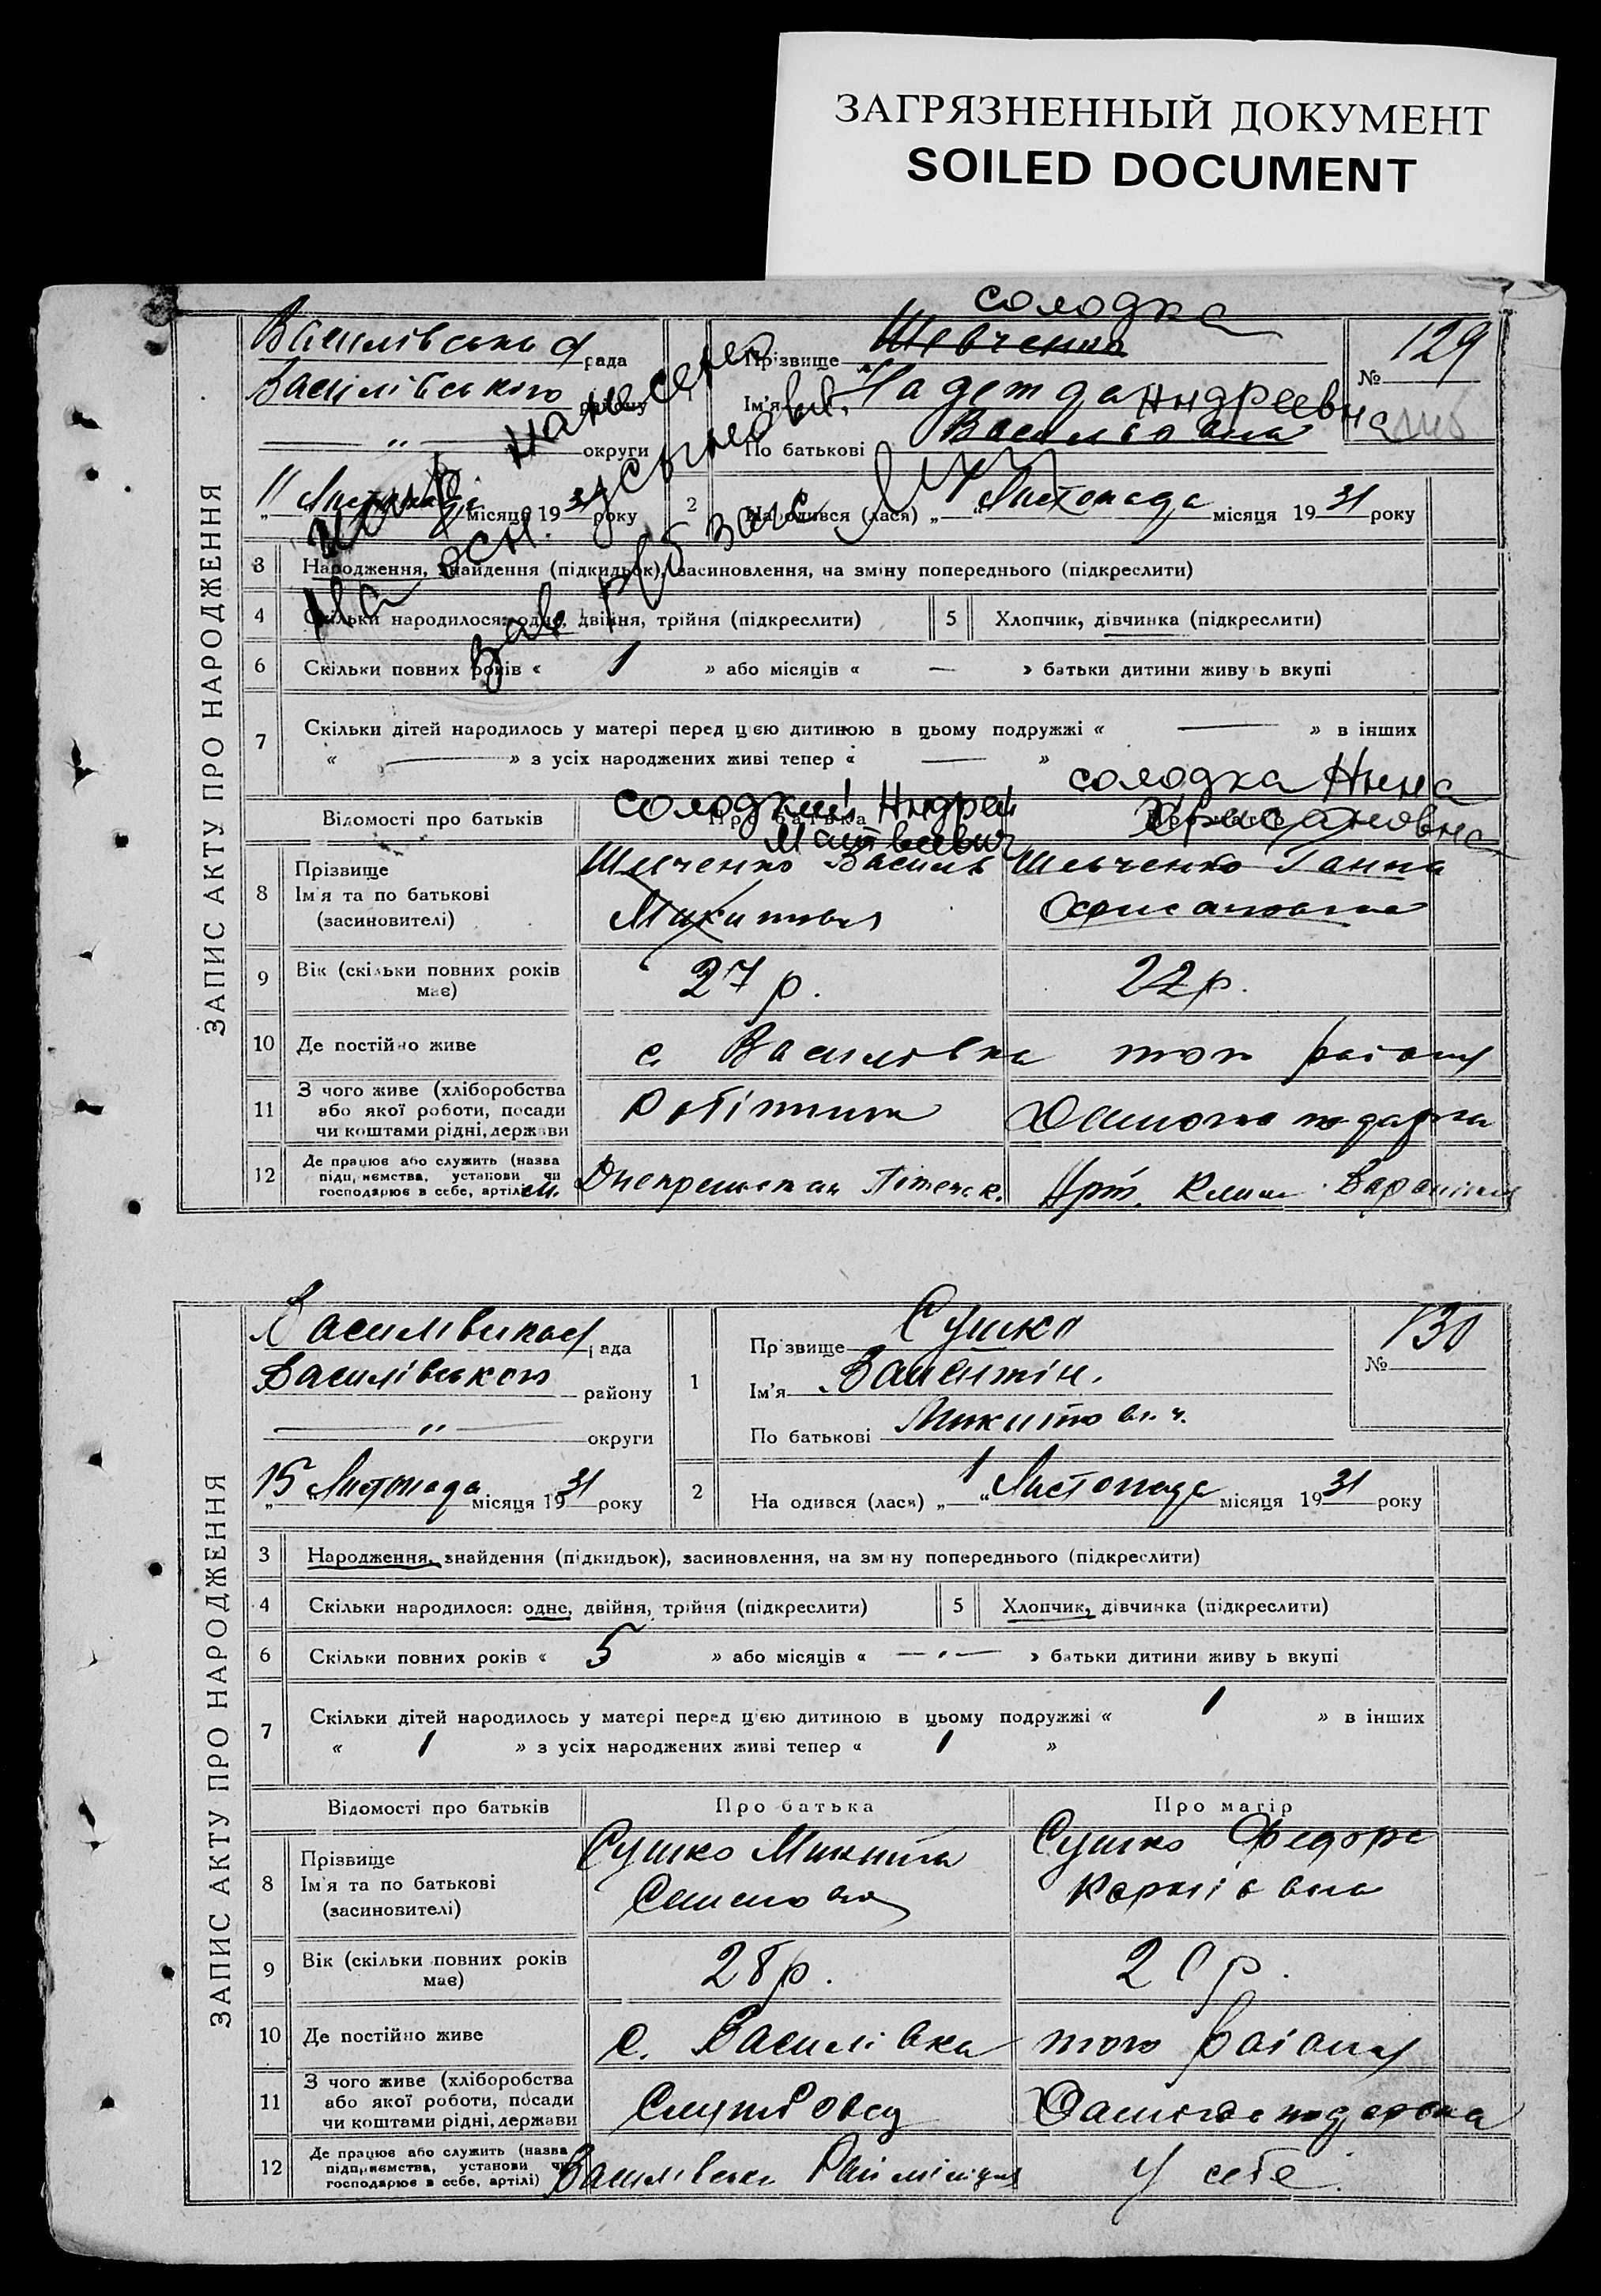 ЗАГРЯЗНЕННЫЙ ДОКУМЕНТ
SOILED DOCUMENT
ЗАПИС АКТУ ПРО НАРОДЖЕННЯ
Василівська рада
Василівського району
— „ — округи
11 Листопада місяця 1931 року
солодка
Прізвище Шевченко
Ім'я Надежда Андреевна
По батькові Васильовна
№ 129
2 Народився (лася) „ 1 “ Листопада місяця 1931 року
3 Народження, знайдення (підкидьок), засиновлення, на зміну попереднього (підкреслити)
4 Скільки народилося: одне, двійня, трійня (підкреслити) 5 Хлопчик, дівчинка (підкреслити)
6 Скільки повних років « 1 » або місяців « — » батьки дитини живуть вкупі
7 Скільки дітей народилось у матері перед цією дитиною в цьому подружжі « — » в інших
« — » з усіх народжених живі тепер « — »
солодкий Андрей Матвеевич
солодка Анна
Відомості про батьків Про батька
8 Прізвище Ім'я та по батькові (засиновителі)
Шевченко Василь Микитович
Шевченко Ганна
9 Вік (скільки повних років має) 27 р. 22 р.
10 Де постійно живе с Василівка того району
11 З чого живе (хліборобства або якої роботи, посади чи коштами рідні, держави Робітник Домогосподарка
12 Де працює або служить (назва підприємства, установи чи господарює в себе, артілі) Арт. Клим
ЗАПИС АКТУ ПРО НАРОДЖЕННЯ
Василівська рада
Василівського району
— „ — округи
15 Листопада місяця 1931 року
1 Прізвище Сушко
Ім'я Валентін.
По батькові Микитович.
№ 130
2 Народився (лася) „ 1 “ Листопада місяця 1931 року
3 Народження, знайдення (підкидьок), засиновлення, на зміну попереднього (підкреслити)
4 Скільки народилося: одне, двійня, трійня (підкреслити) 5 Хлопчик, дівчинка (підкреслити)
6 Скільки повних років « 5 » або місяців « — » батьки дитини живуть вкупі
7 Скільки дітей народилось у матері перед цією дитиною в цьому подружжі « 1 » в інших
« 1 » з усіх народжених живі тепер « 1 »
Відомості про батьків Про батька Про матір
8 Прізвище Ім'я та по батькові (засиновителі)
Сушко Микита
Сушко Федора
9 Вік (скільки повних років має) 28 р. 20 р.
10 Де постійно живе с. Василівка того району
11 З чого живе (хліборобства або якої роботи, посади чи коштами рідні, держави Домогосподарка
12 Де працює або служить (назва підприємства, установи чи господарює в себе, артілі) Василівська Райміліція У себе.